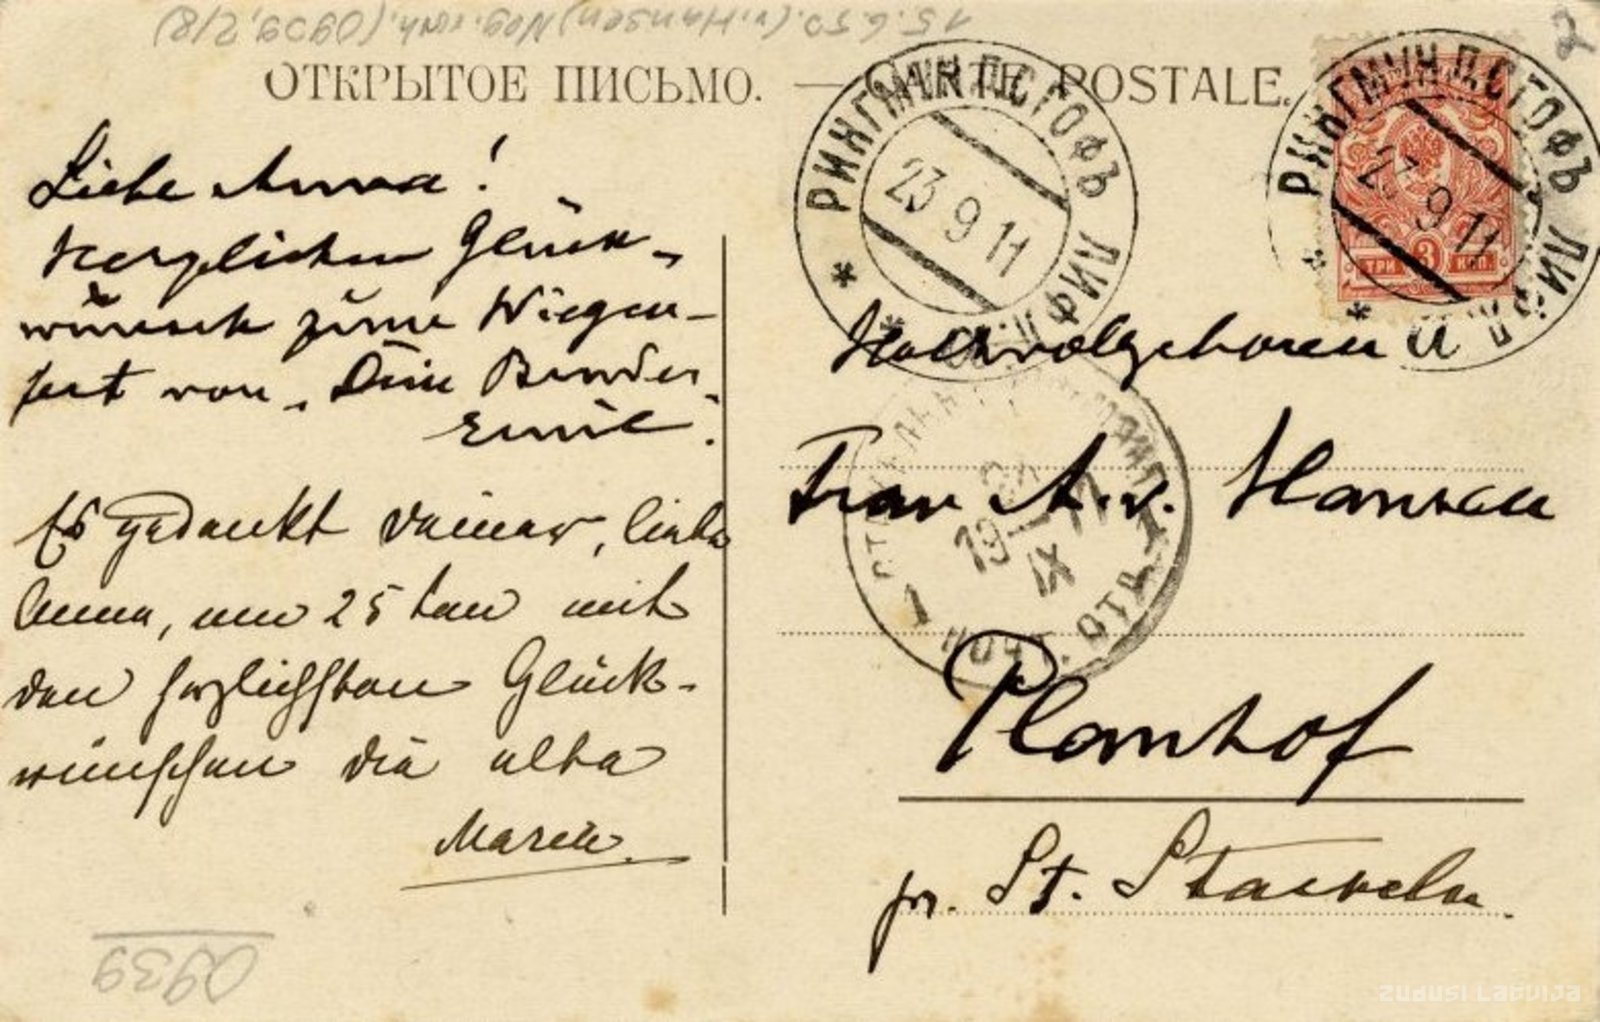 15.6.50. (v. Hansen) Nog. (0909,2/8)
ОТКРЫТОЕ ПИСЬМО. — CARTE POSTALE.
РИНГМУНДСГОФЪ ЛИФЛ.
23 9 11
РИНГМУНДСГОФЪ ЛИФЛ.
23 9 11
ТРИ 3 КОП.
2
Liebe Anna!
Herzlichen Glück-
wünsch zum Wiegen-
fest von Dein Bruder
Emil.
Es gedenkt deiner, liebe
Anna, am 25ten mit
den herzlichsten Glück-
wünschen die alte
Marie
Hochwolgeboren
Frau A. v. Hansen
Planhof
pr. St. Stackeln.
19 11
IX
ПОЧТ. ОТД.
1
0939
zudusi Latvija